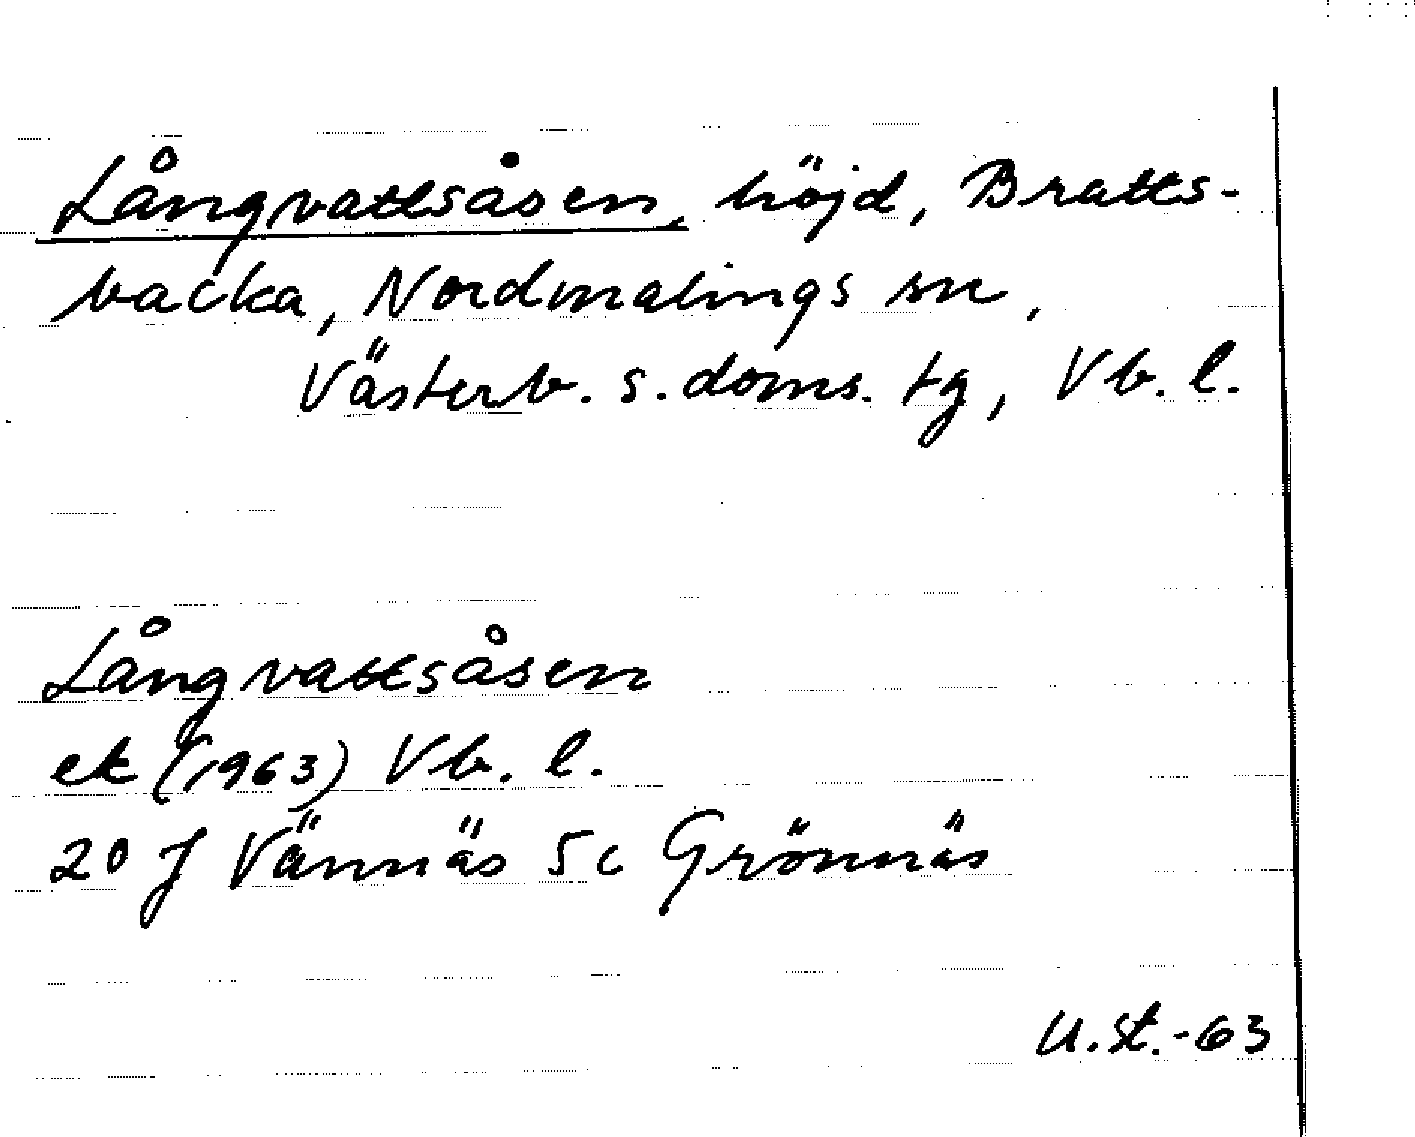 Långvattsåsen, höjd, Bratts-
backa, Nordmalings sn,
Västerb. s. doms. tg, Vb. l.
Långvattsåsen
ek (1963) Vb. l.
20 J Vännäs 5c Grönnäs
U. St. -63